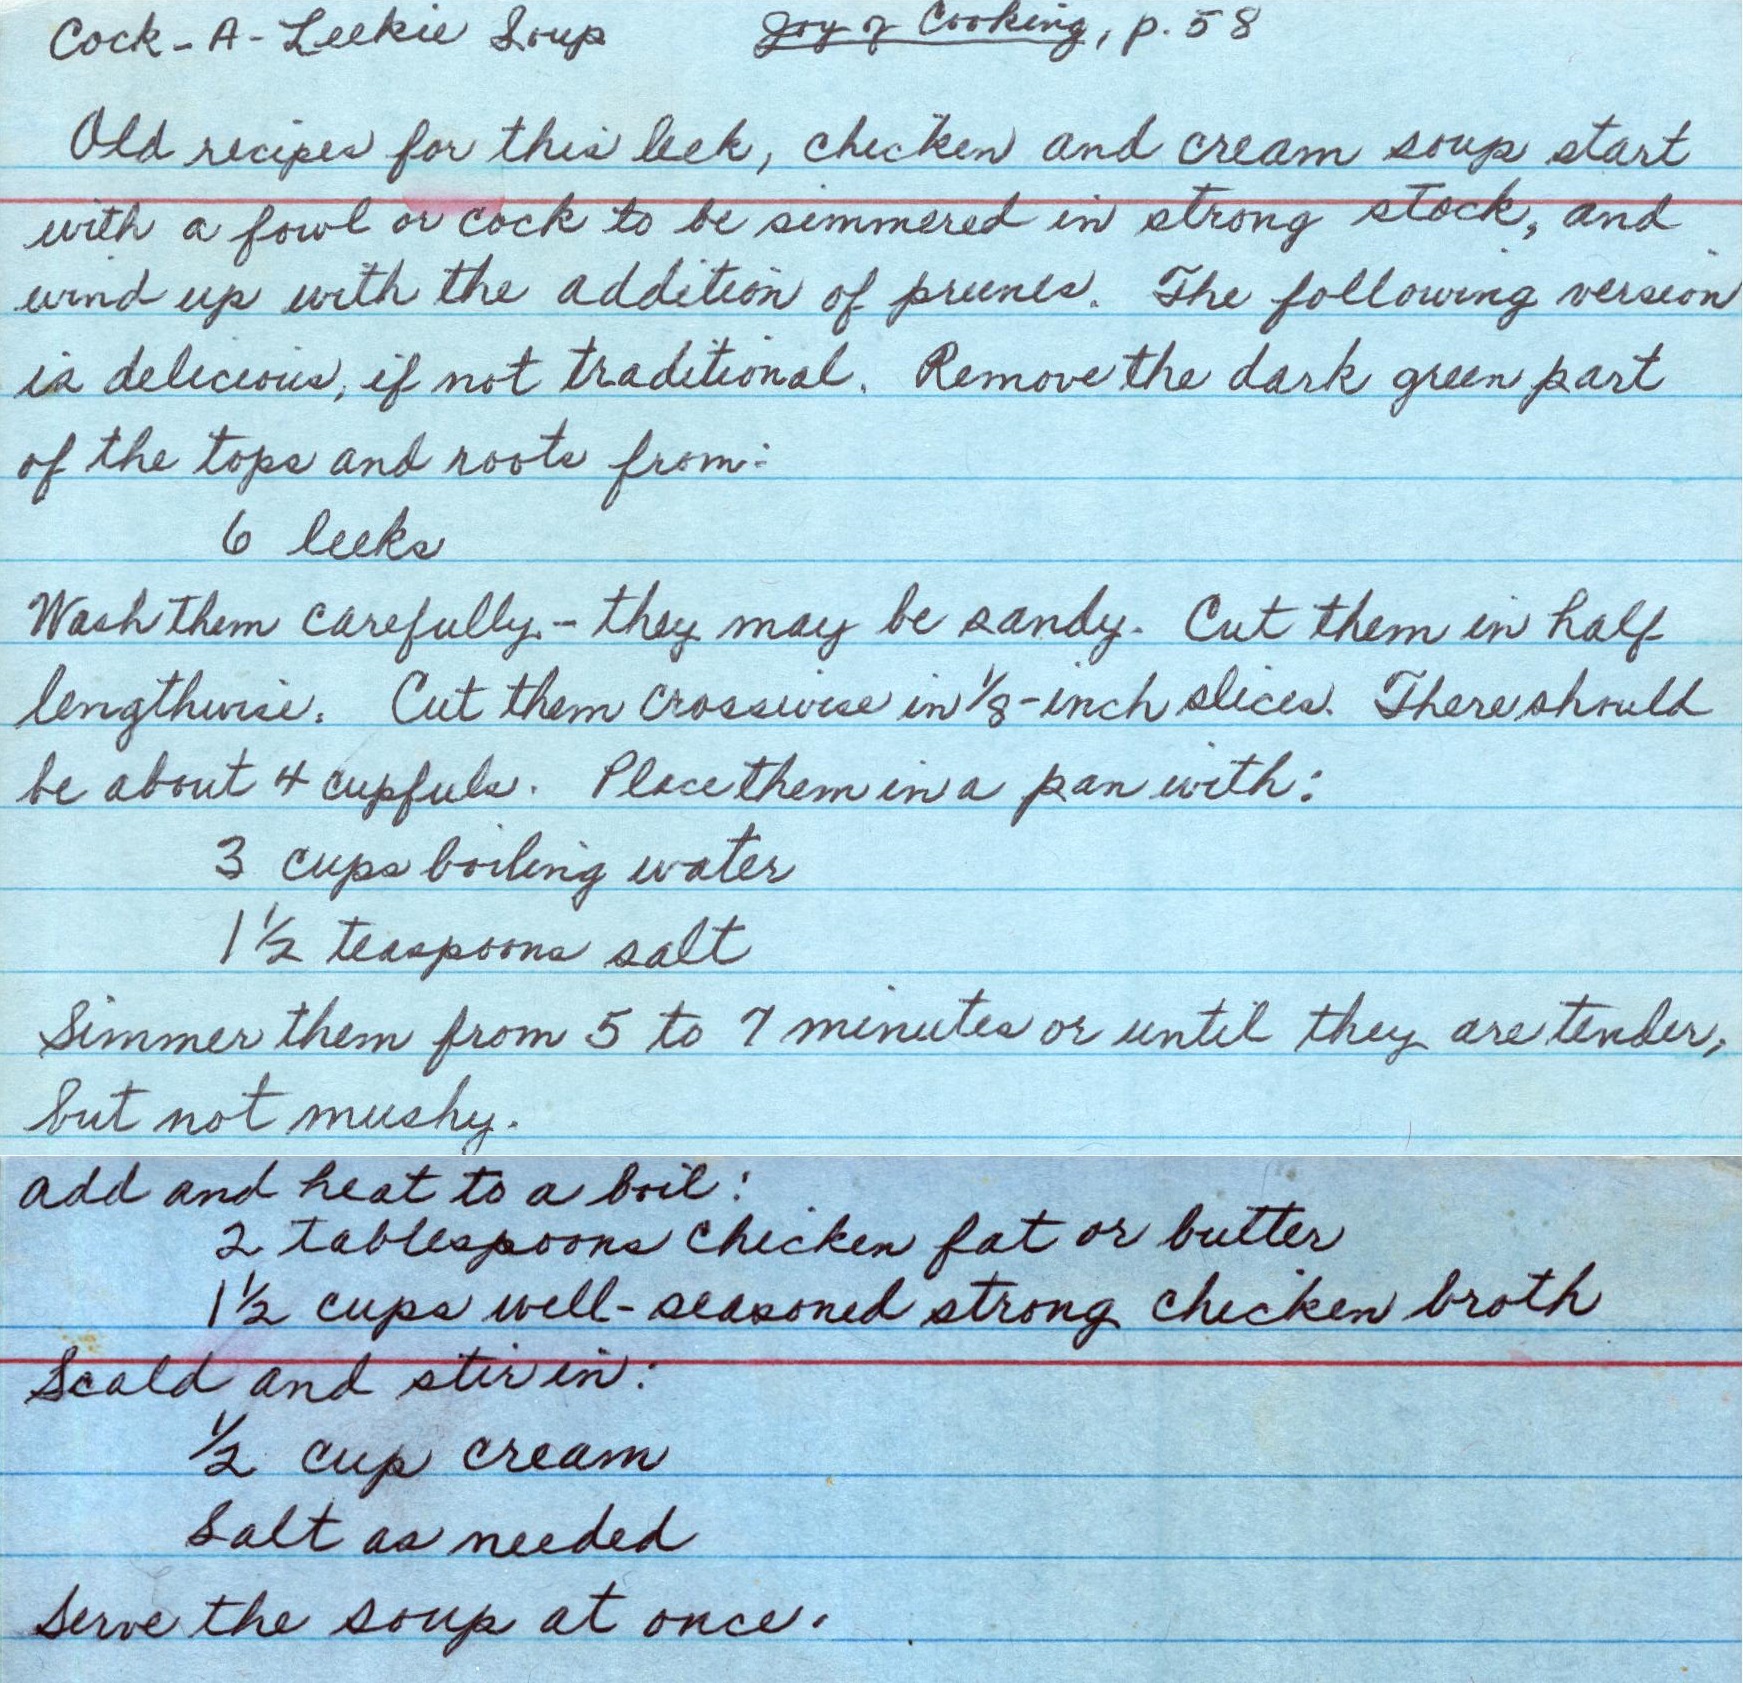 Cock-A-Leekie Soup Joy of Cooking, p. 58
Old recipes for this leek, chicken and cream soup start
with a fowl or cock to be simmered in strong stock, and
wind up with the addition of prunes. The following version
is delicious, if not traditional. Remove the dark green part
of the tops and roots from:
6 leeks
Wash them carefully - they may be sandy. Cut them in half
lengthwise. Cut them crosswise in 1/8-inch slices. There should
be about 4 cupfuls. Place them in a pan with:
3 cups boiling water
1 1/2 teaspoons salt
Simmer them from 5 to 7 minutes or until they are tender,
but not mushy.
add and heat to a boil:
2 tablespoons chicken fat or butter
1 1/2 cups well-seasoned strong chicken broth
Scald and stir in:
1/2 cup cream
Salt as needed
Serve the soup at once.